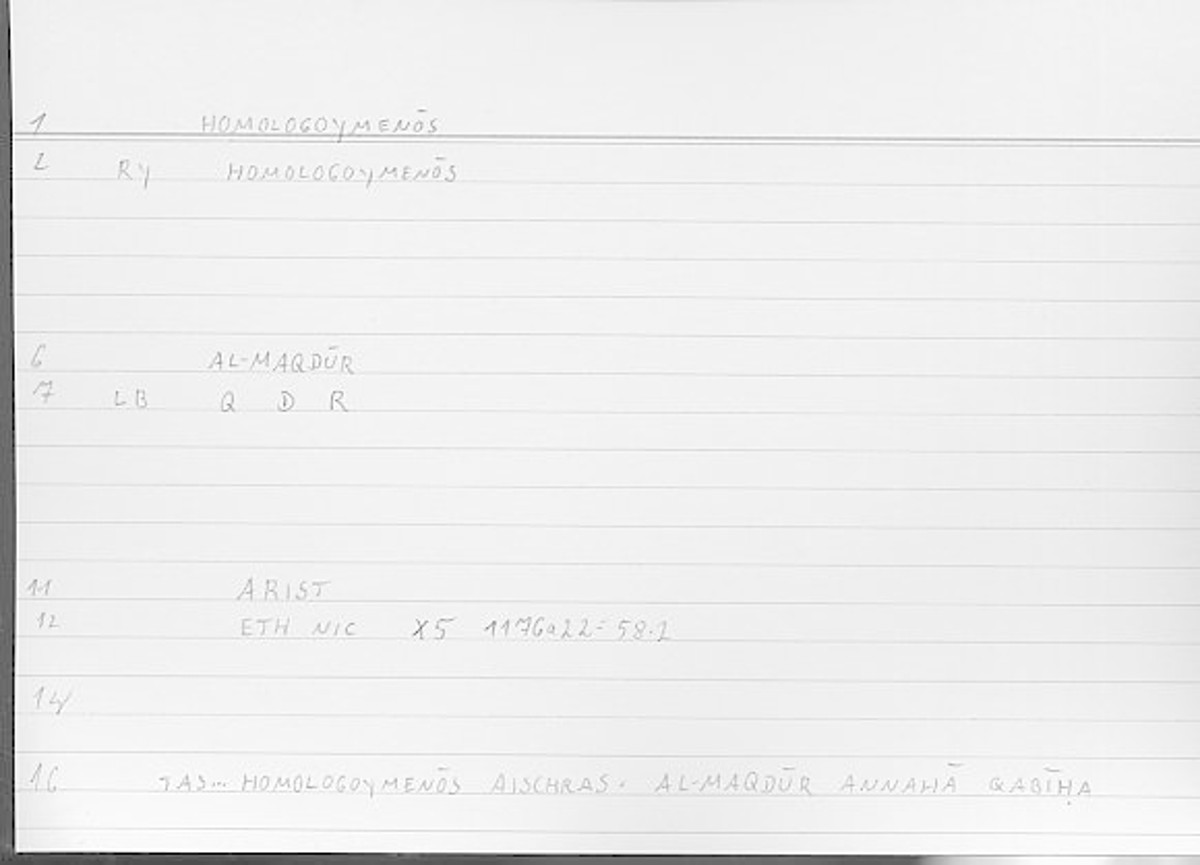 1 HOMOLOGOYMENŌS
2 RY HOMOLOGOYMENŌS
6 AL-MAQDŪR
7 LB Q D R
11 ARIST
12 ETH NIC X5 1176a22=58.2
14
16 TAS... HOMOLOGOYMENŌS AISCHRAS. AL-MAQDŪR ANNAHĀ QABĪḤA